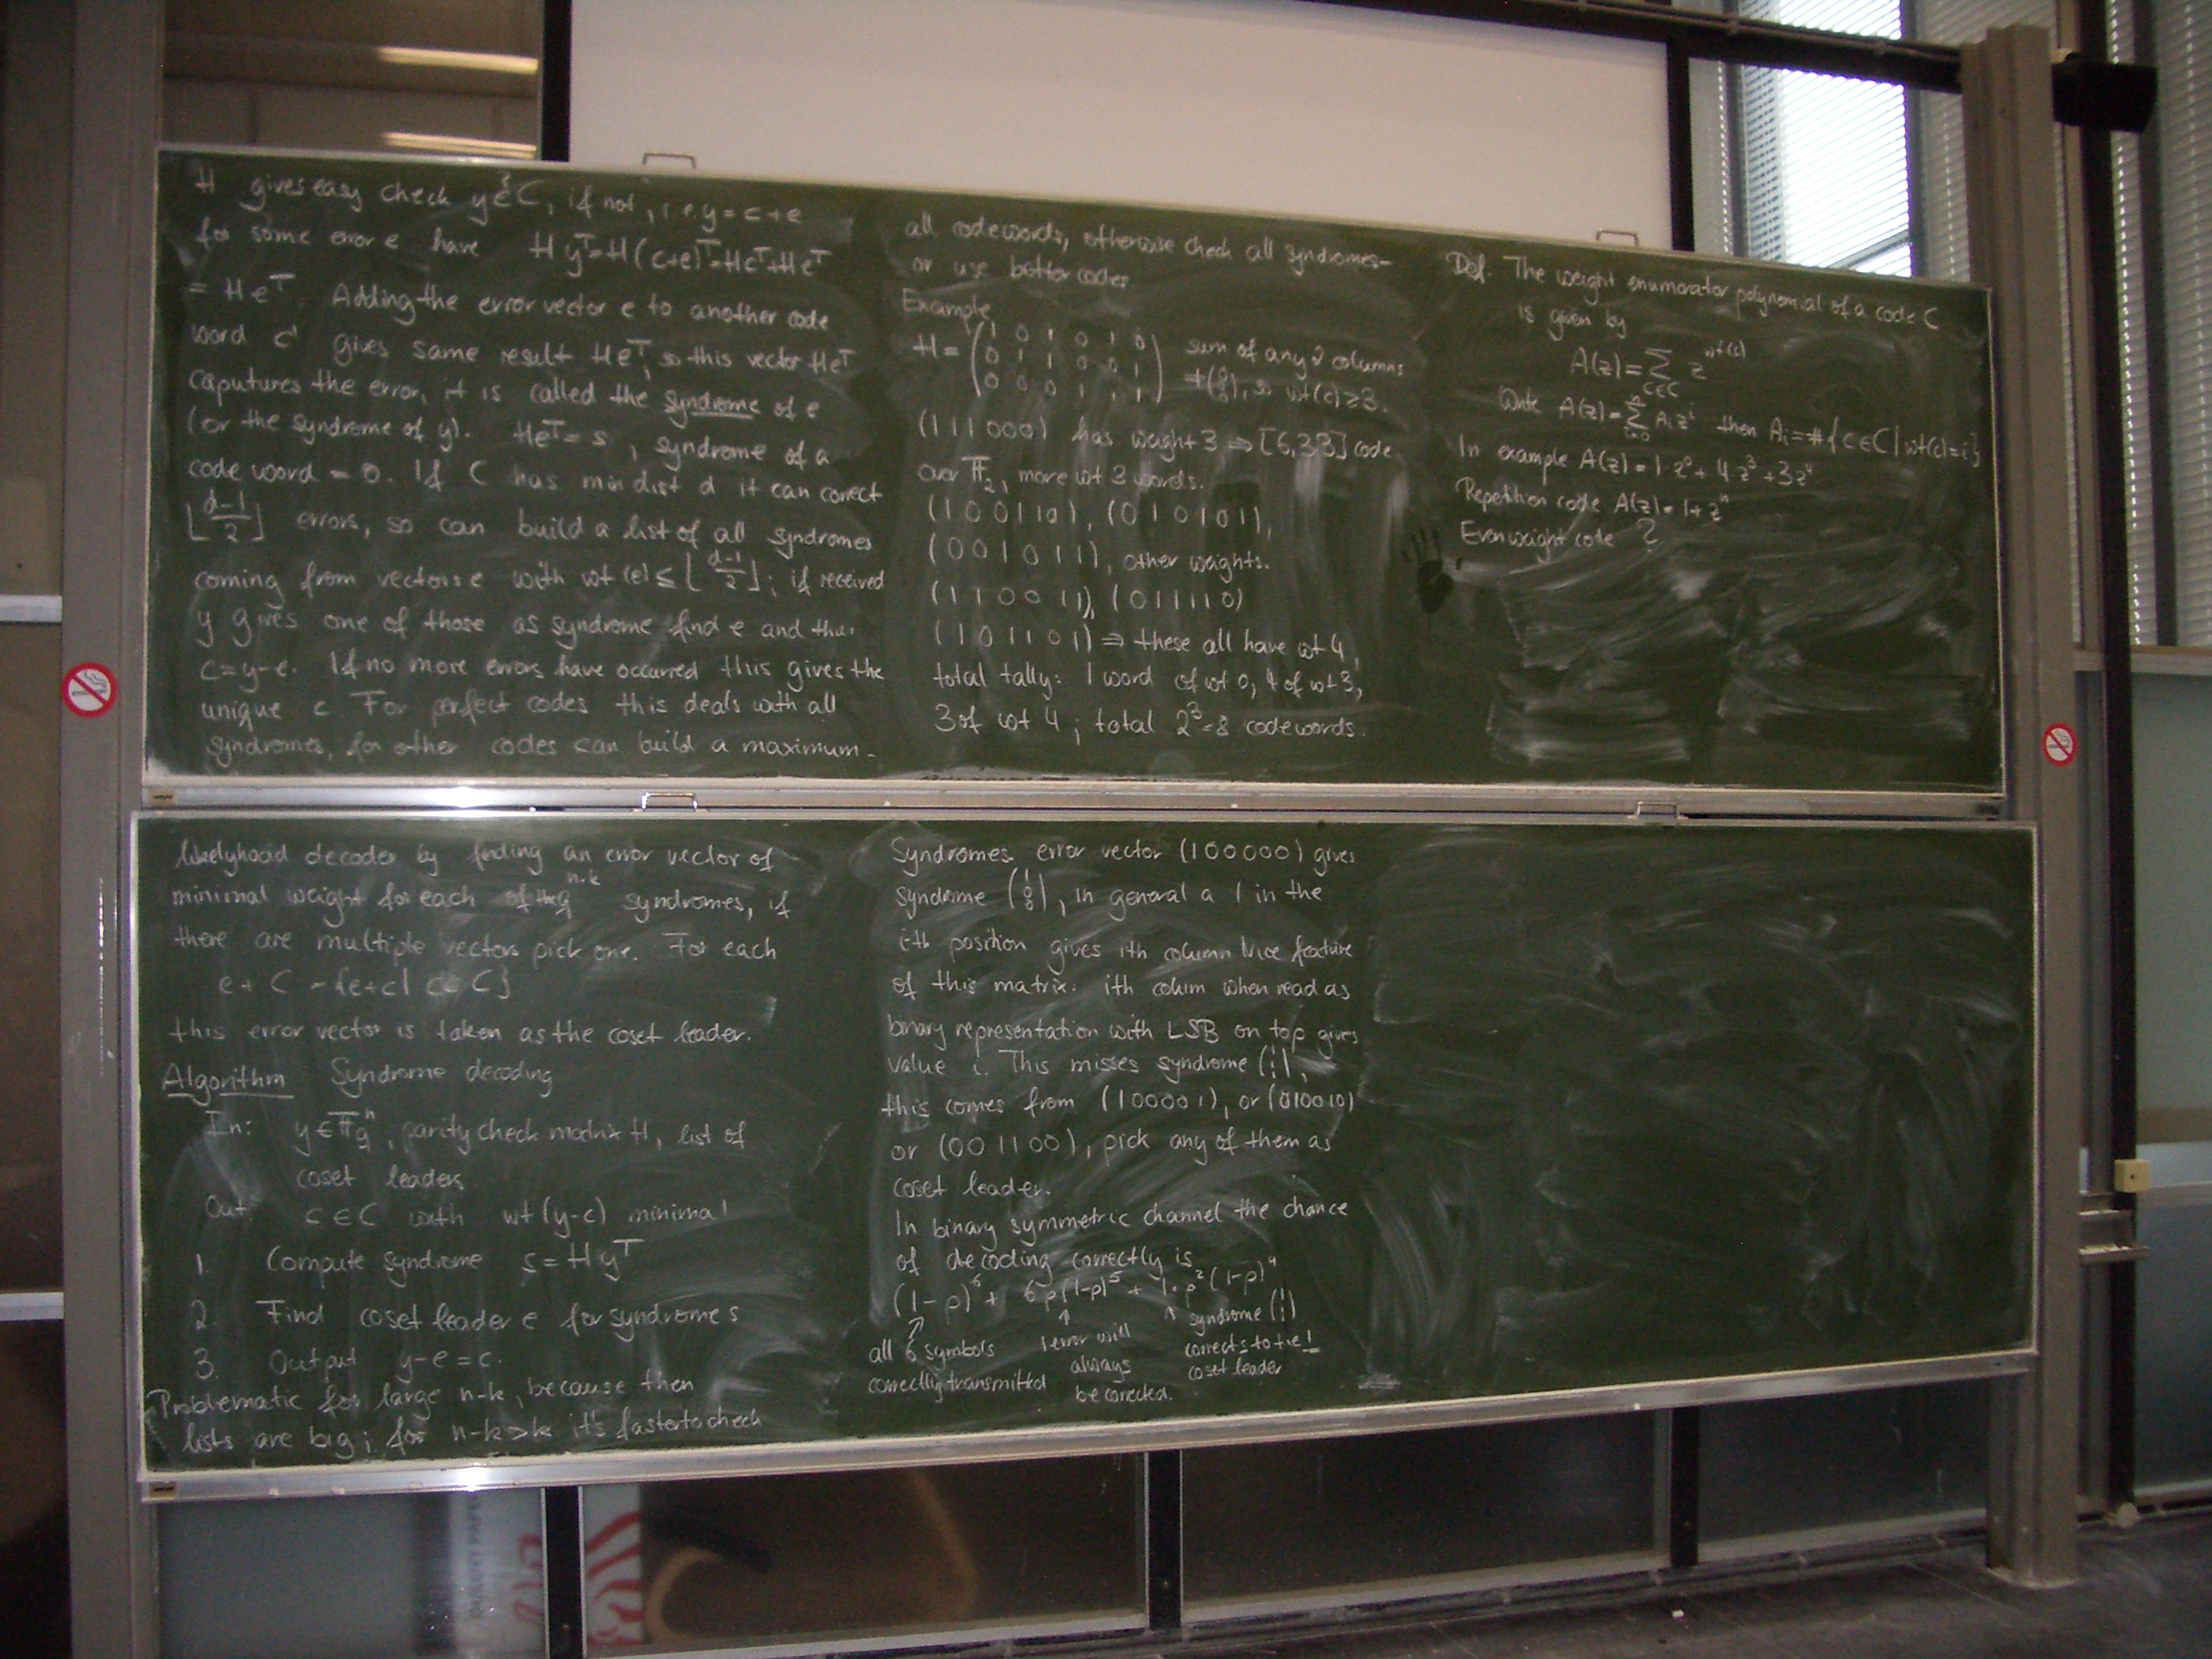 H gives easy check y ∈? C, if not, i.e. y = c+e
for some error e have Hy^T = H(c+e)^T = Hc^T + He^T
= He^T. Adding the error vector e to another code
word c' gives same result He^T, so this vector He^T
caputures the error, it is called the syndrome of e
(or the syndrome of y). He^T = s, syndrome of a
code word = 0. If C has min dist d it can correct
⌊(d-1)/2⌋ errors, so can build a list of all syndromes
coming from vectors e with wt(e) ≤ ⌊(d-1)/2⌋; if received
y gives one of those as syndrome find e and thus
c = y-e. If no more errors have occurred this gives the
unique c For perfect codes this deals with all
syndromes, for other codes can build a maximum-
likelyhood decoder by finding an error vector of
minimal weight for each of the q^(n-k) syndromes, if
there are multiple vectors pick one. For each
e + C = {e+c | c ∈ C}
this error vector is taken as the coset leader.
Algorithm Syndrome decoding
In: y ∈ F_q^n, parity check matrix H, list of
coset leaders
Out: c ∈ C with wt(y-c) minimal
1. Compute syndrome s = Hy^T
2. Find coset leader e for syndrome s
3. Output y-e = c.
Problematic for large n-k, because then
lists are big; for n-k > k it's faster to check
all codewords, otherwise check all syndromes-
or use better codes
Example
H = (1 0 1 0 1 0
0 1 1 0 0 1
0 0 0 1 1 1) sum of any 2 columns
≠ (0 0 0), so wt(c) ≥ 3.
(111000) has weight 3 ⇒ [6,3,3] code
over F_2, more wt 3 words.
(100110), (010101),
(001011), other weights.
(110011), (011110)
(101101) ⇒ these all have wt 4,
total tally: 1 word of wt 0, 4 of wt 3,
3 of wt 4; total 2^3 = 8 codewords.
Syndromes error vector (100000) gives
syndrome (1 0 0), in general a 1 in the
i-th position gives ith column Nice feature
of this matrix: ith colum when read as
binary representation with LSB on top gives
value i. This misses syndrome (1 1 1),
this comes from (100001), or (010010)
or (001100), pick any of them as
coset leader.
In binary symmetric channel the chance
of decoding correctly is
(1-p)^6 + 6p(1-p)^5 + 1·p^2(1-p)^4
all 6 symbols
correctly transmitted
1 error will
always
be corrected.
syndrome (1 1 1)
corrects to the 1
coset leader
Def. The weight enumerator polynomial of a code C
is given by
A(z) = Σ_{c∈C} z^{wt(c)}
Write A(z) = Σ_{i=0}^n A_i z^i then A_i = #{c ∈ C | wt(c) = i}
In example A(z) = 1·z^0 + 4z^3 + 3z^4
Repetition code A(z) = 1 + z^n
Even weight code ?